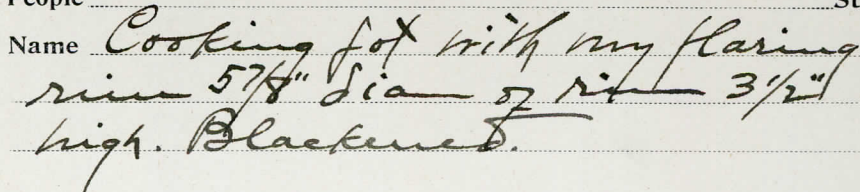 People St
Name Cooking pot with flaring
rim 5 7/8" diam of rim 3 1/2"
high. Blackened.